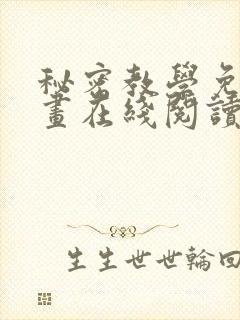 秘密教學免
畫在綫閱讀
生生世世輪回